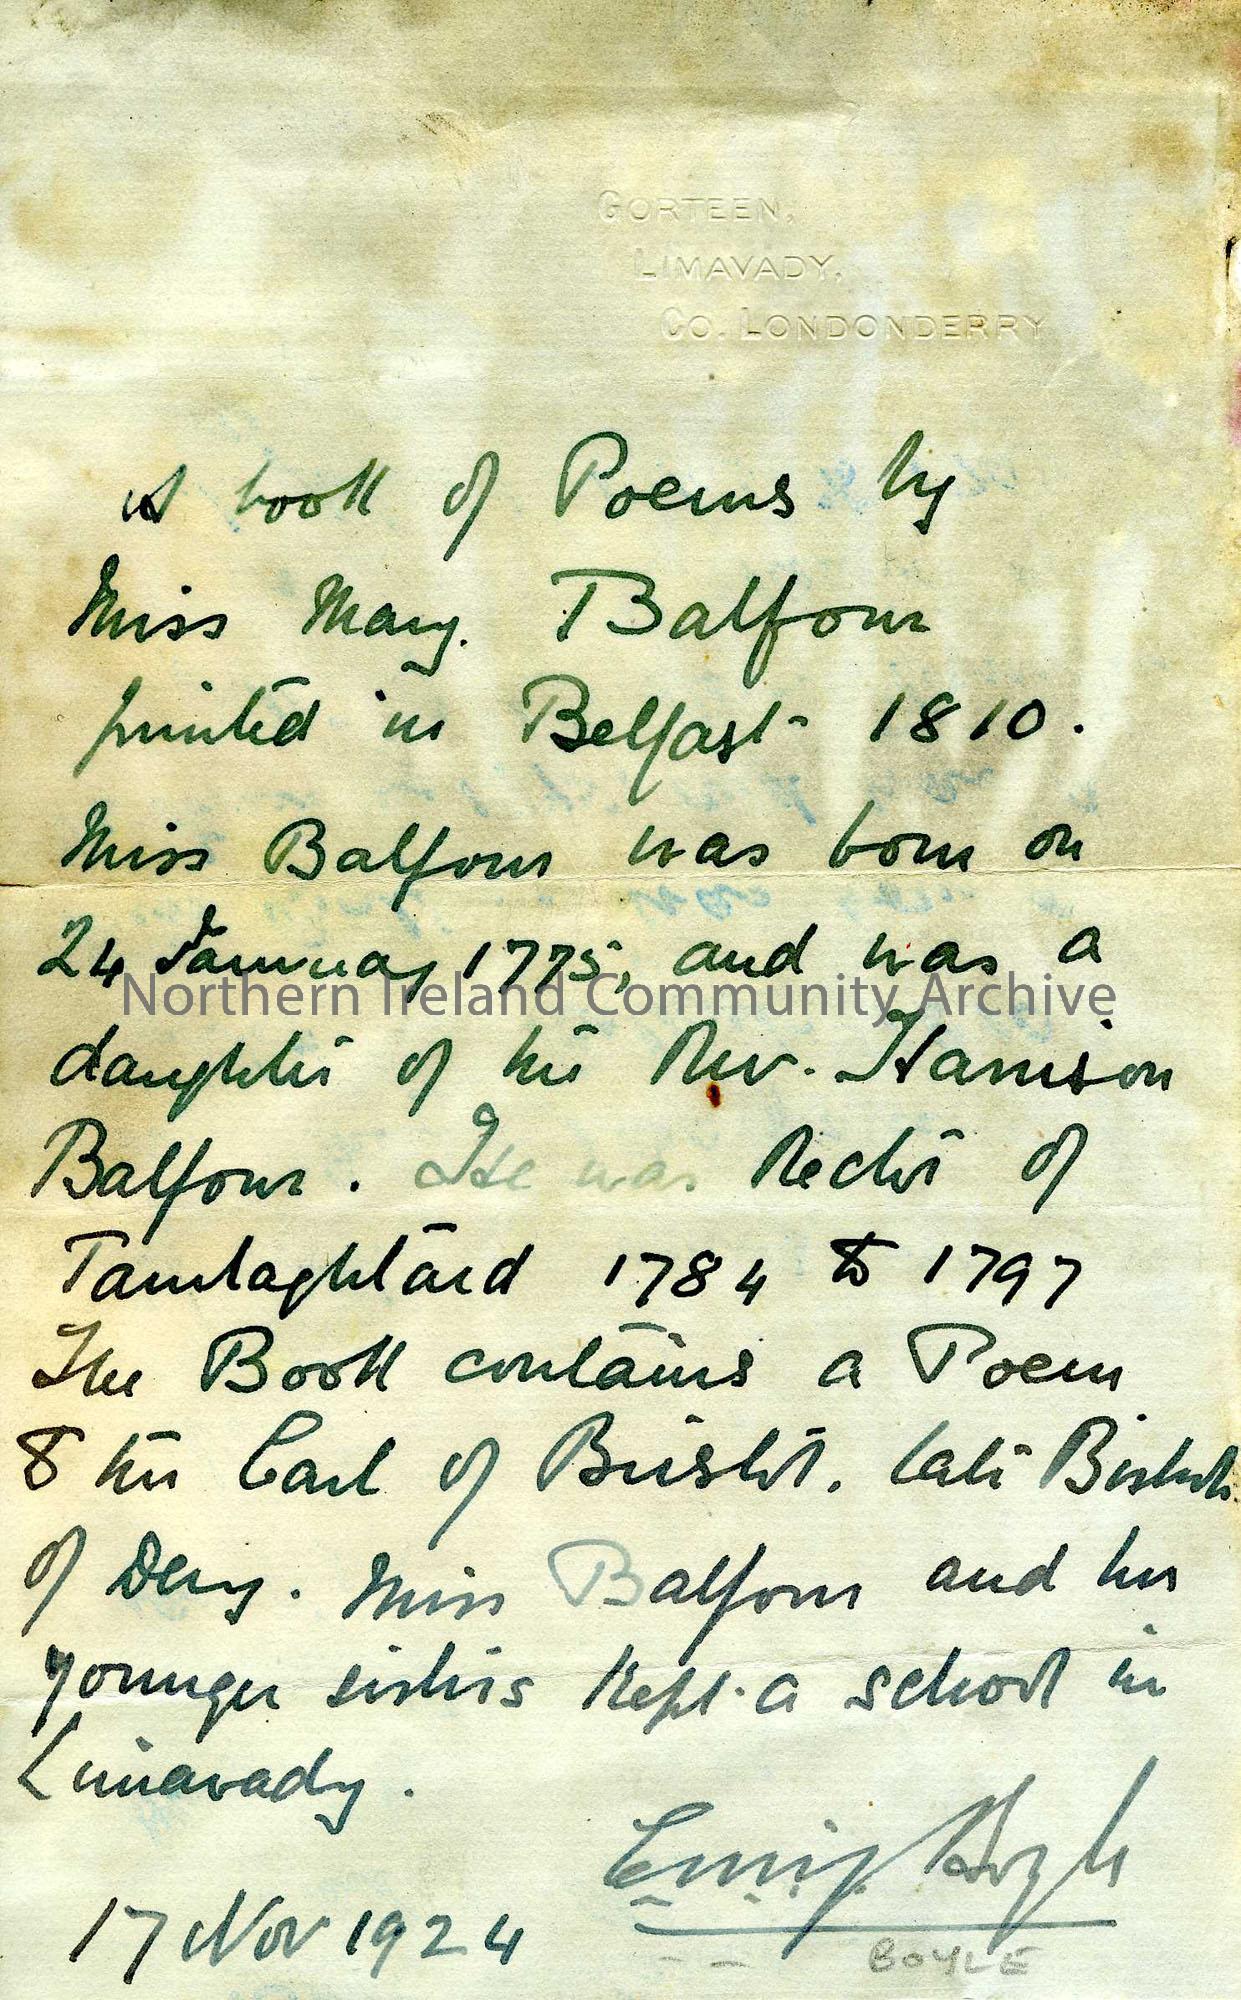 GORTEEN,
LIMAVADY,
CO. LONDONDERRY
A book of Poems by
Miss Mary. Balfour
printed in Belfast 1810.
Miss Balfour was born on
24 January 1775, and was a
Northern Ireland Community Archive
daughter of the Rev. Harrison
Balfour. He was Rector of
Tamlaghtard 1784 to 1797
The Book contains a Poem
to the Earl of Bristol. late Bishop
of Derry. Miss Balfour and her
younger sisters kept a school in
Limavady.
Emily Boyle
17 Nov 1924
BOYLE